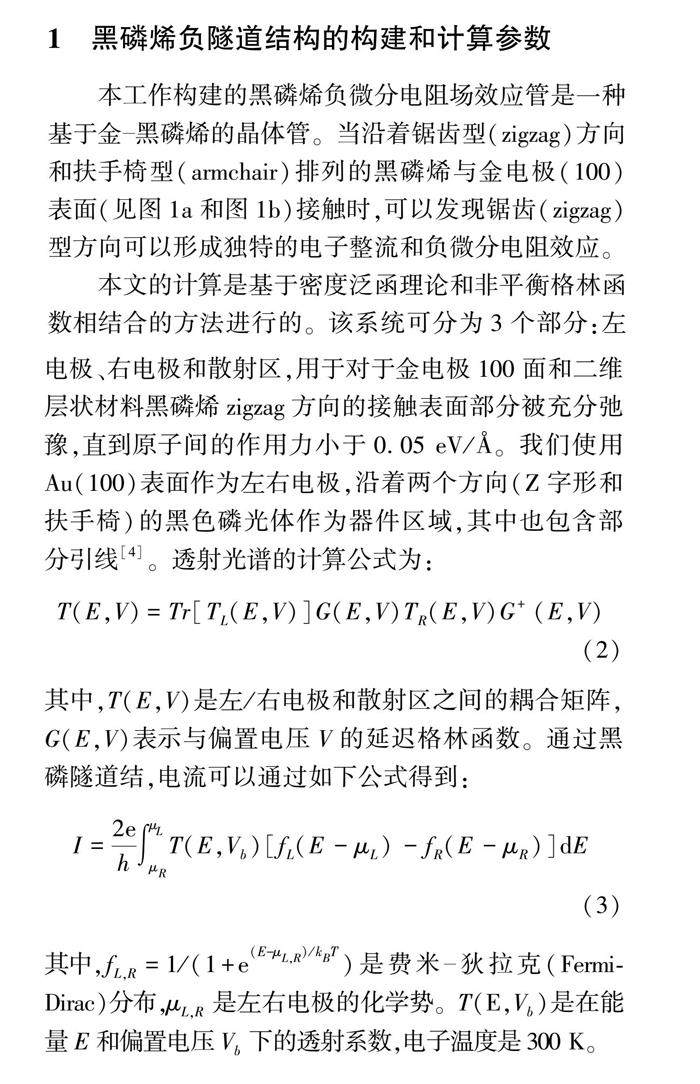 1 黑磷烯负隧道结构的构建和计算参数
本工作构建的黑磷烯负微分电阻场效应管是一种
基于金–黑磷烯的晶体管。当沿着锯齿型(zigzag)方向
和扶手椅型(armchair)排列的黑磷烯与金电极(100)
表面(见图1a和图1b)接触时,可以发现锯齿(zigzag)
型方向可以形成独特的电子整流和负微分电阻效应。
本文的计算是基于密度泛函理论和非平衡格林函
数相结合的方法进行的。该系统可分为3个部分:左
电极、右电极和散射区,用于对于金电极100面和二维
层状材料黑磷烯zigzag方向的接触表面部分被充分弛
豫,直到原子间的作用力小于0.05 eV/Å。我们使用
Au(100)表面作为左右电极,沿着两个方向(Z字形和
扶手椅)的黑色磷光体作为器件区域,其中也包含部
分引线[4]。透射光谱的计算公式为:
T(E,V) = Tr[T_L(E,V)]G(E,V)T_R(E,V)G^+(E,V)
(2)
其中,T(E,V)是左/右电极和散射区之间的耦合矩阵,
G(E,V)表示与偏置电压V的延迟格林函数。通过黑
磷隧道结,电流可以通过如下公式得到:
I = \frac{2e}{h}\int_{μ_R}^{μ_L} T(E,V_b)[f_L(E - μ_L) - f_R(E - μ_R)]dE
(3)
其中,f_{L,R} = 1/(1+e^{(E-μ_{L,R})/k_BT})是费米–狄拉克(Fermi-
Dirac)分布,μ_{L,R}是左右电极的化学势。T(E,V_b)是在能
量E和偏置电压V_b下的透射系数,电子温度是300 K。